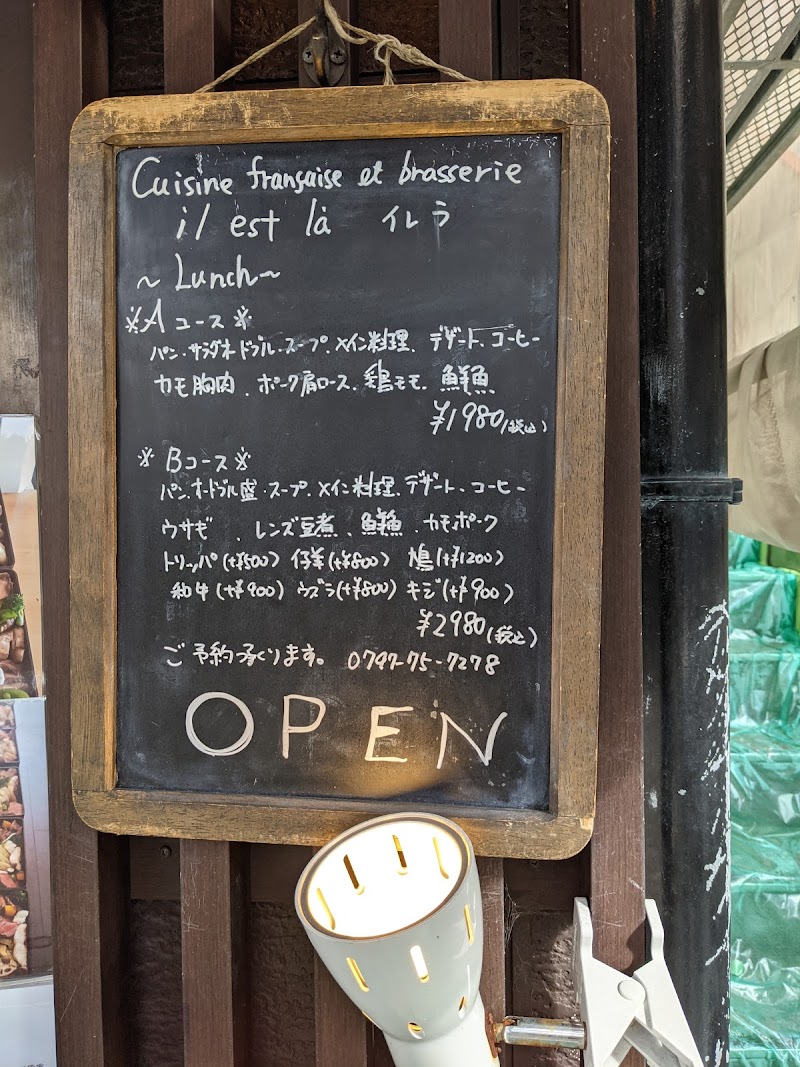 Cuisine française et brasserie
il est là イレラ
~Lunch~
※Aコース※
パン、サラダオードブル、スープ、メイン料理、デザート、コーヒー
カモ胸肉、ポーク肩ロース、鶏モモ、鮮魚
¥1980(税込)
※Bコース※
パン、オードブル盛、スープ、メイン料理、デザート、コーヒー
ウサギ、レンズ豆煮、鮮魚、カモ、ポーク
トリッパ(+¥500) 仔羊(+¥800) 鳩(+¥1200)
和牛(+¥900) ウズラ(+¥800) キジ(+¥900)
¥2980(税込)
ご予約承ります。 0797-75-7278
OPEN